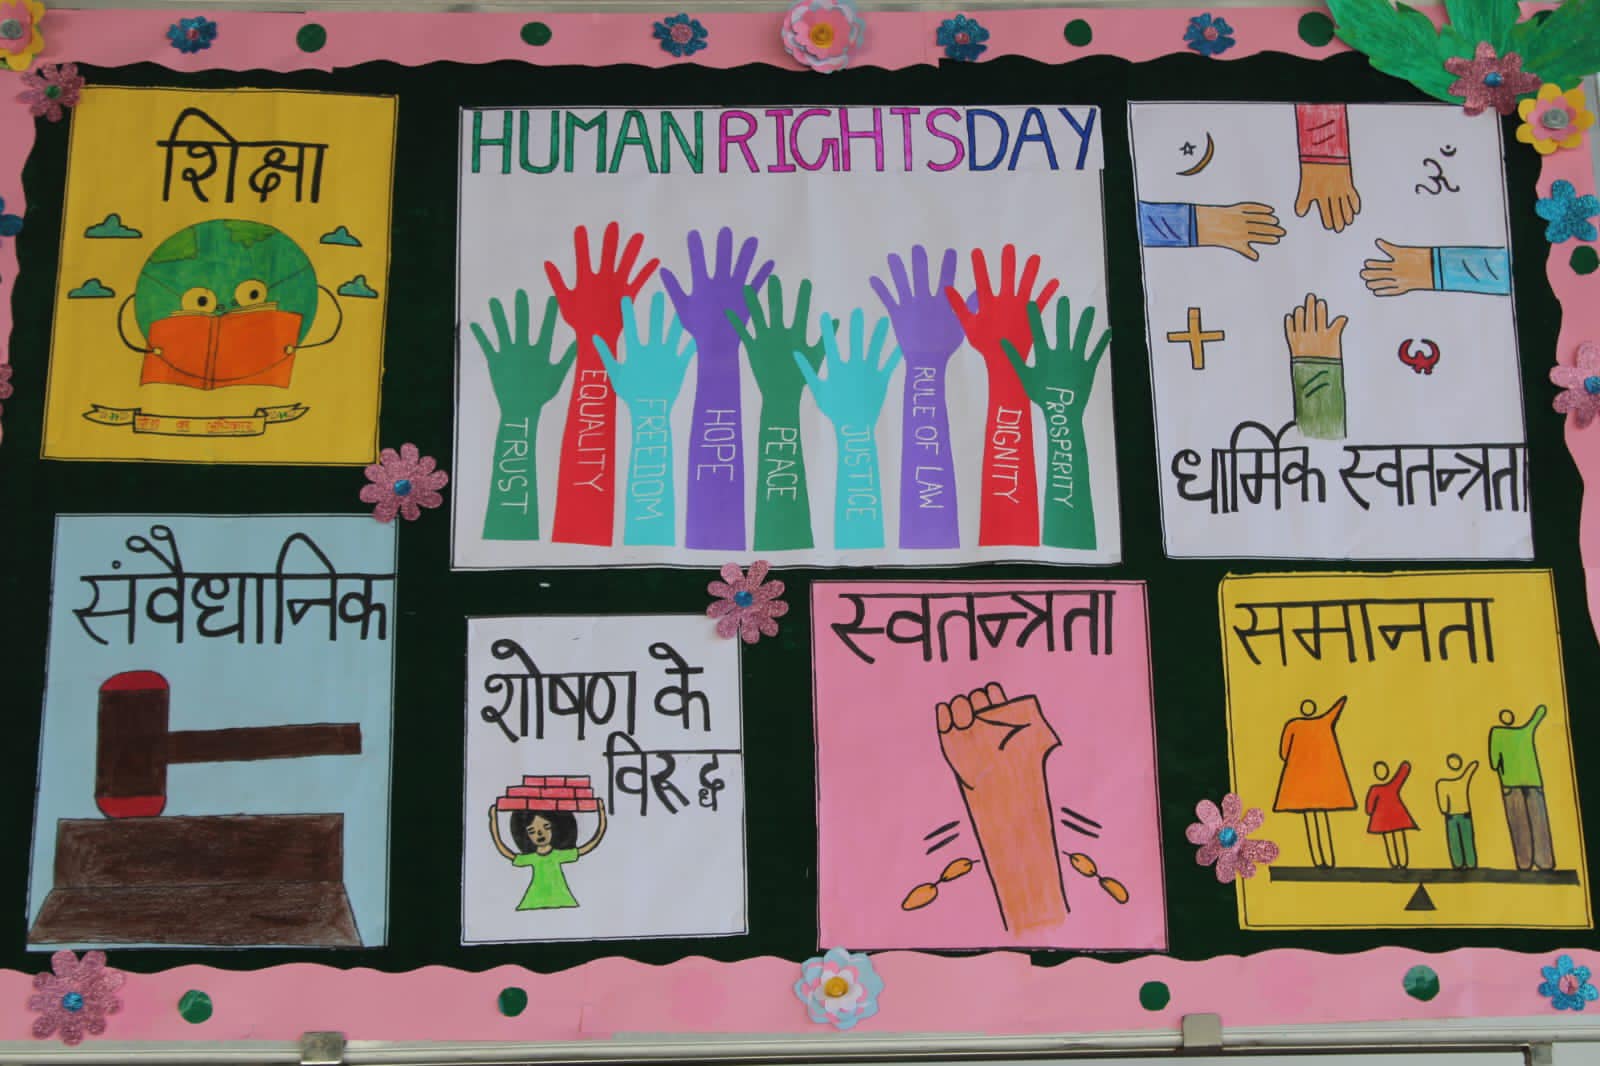 शिक्षा
HUMAN RIGHTS DAY
TRUST
EQUALITY
FREEDOM
HOPE
PEACE
JUSTICE
RULE OF LAW
DIGNITY
PROSPERITY
ॐ
धार्मिक स्वतन्त्रता
संवैधानिक
शोषण के
विरूद्ध
स्वतन्त्रता
समानता